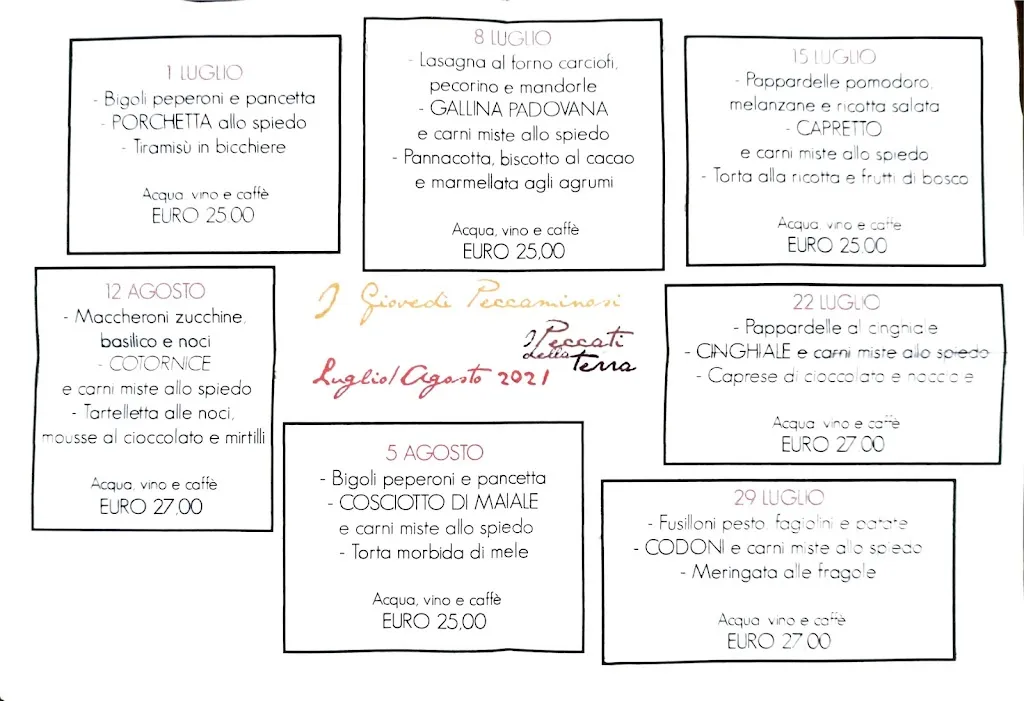 1 LUGLIO
- Bigoli peperoni e pancetta
- PORCHETTA allo spiedo
- Tiramisù in bicchiere
Acqua, vino e caffè
EURO 25,00
8 LUGLIO
- Lasagna al forno carciofi,
pecorino e mandorle
- GALLINA PADOVANA
e carni miste allo spiedo
- Pannacotta, biscotto al cacao
e marmellata agli agrumi
Acqua, vino e caffè
EURO 25,00
15 LUGLIO
- Pappardelle pomodoro,
melanzane e ricotta salata
- CAPRETTO
e carni miste allo spiedo
- Torta alla ricotta e frutti di bosco
Acqua, vino e caffè
EURO 25,00
12 AGOSTO
- Maccheroni zucchine,
basilico e noci
- COTORNICE
e carni miste allo spiedo
- Tartelletta alle noci,
mousse al cioccolato e mirtilli
Acqua, vino e caffè
EURO 27,00
I Giovedì Peccaminosi
I Peccati
della
Terra
Luglio/Agosto 2021
22 LUGLIO
- Pappardelle al cinghiale
- CINGHIALE e carni miste allo spiedo
- Caprese di cioccolato e nocciole
Acqua, vino e caffè
EURO 27,00
5 AGOSTO
- Bigoli peperoni e pancetta
- COSCIOTTO DI MAIALE
e carni miste allo spiedo
- Torta morbida di mele
Acqua, vino e caffè
EURO 25,00
29 LUGLIO
- Fusilloni pesto, fagiolini e patate
- CODONI e carni miste allo spiedo
- Meringata alle fragole
Acqua, vino e caffè
EURO 27,00